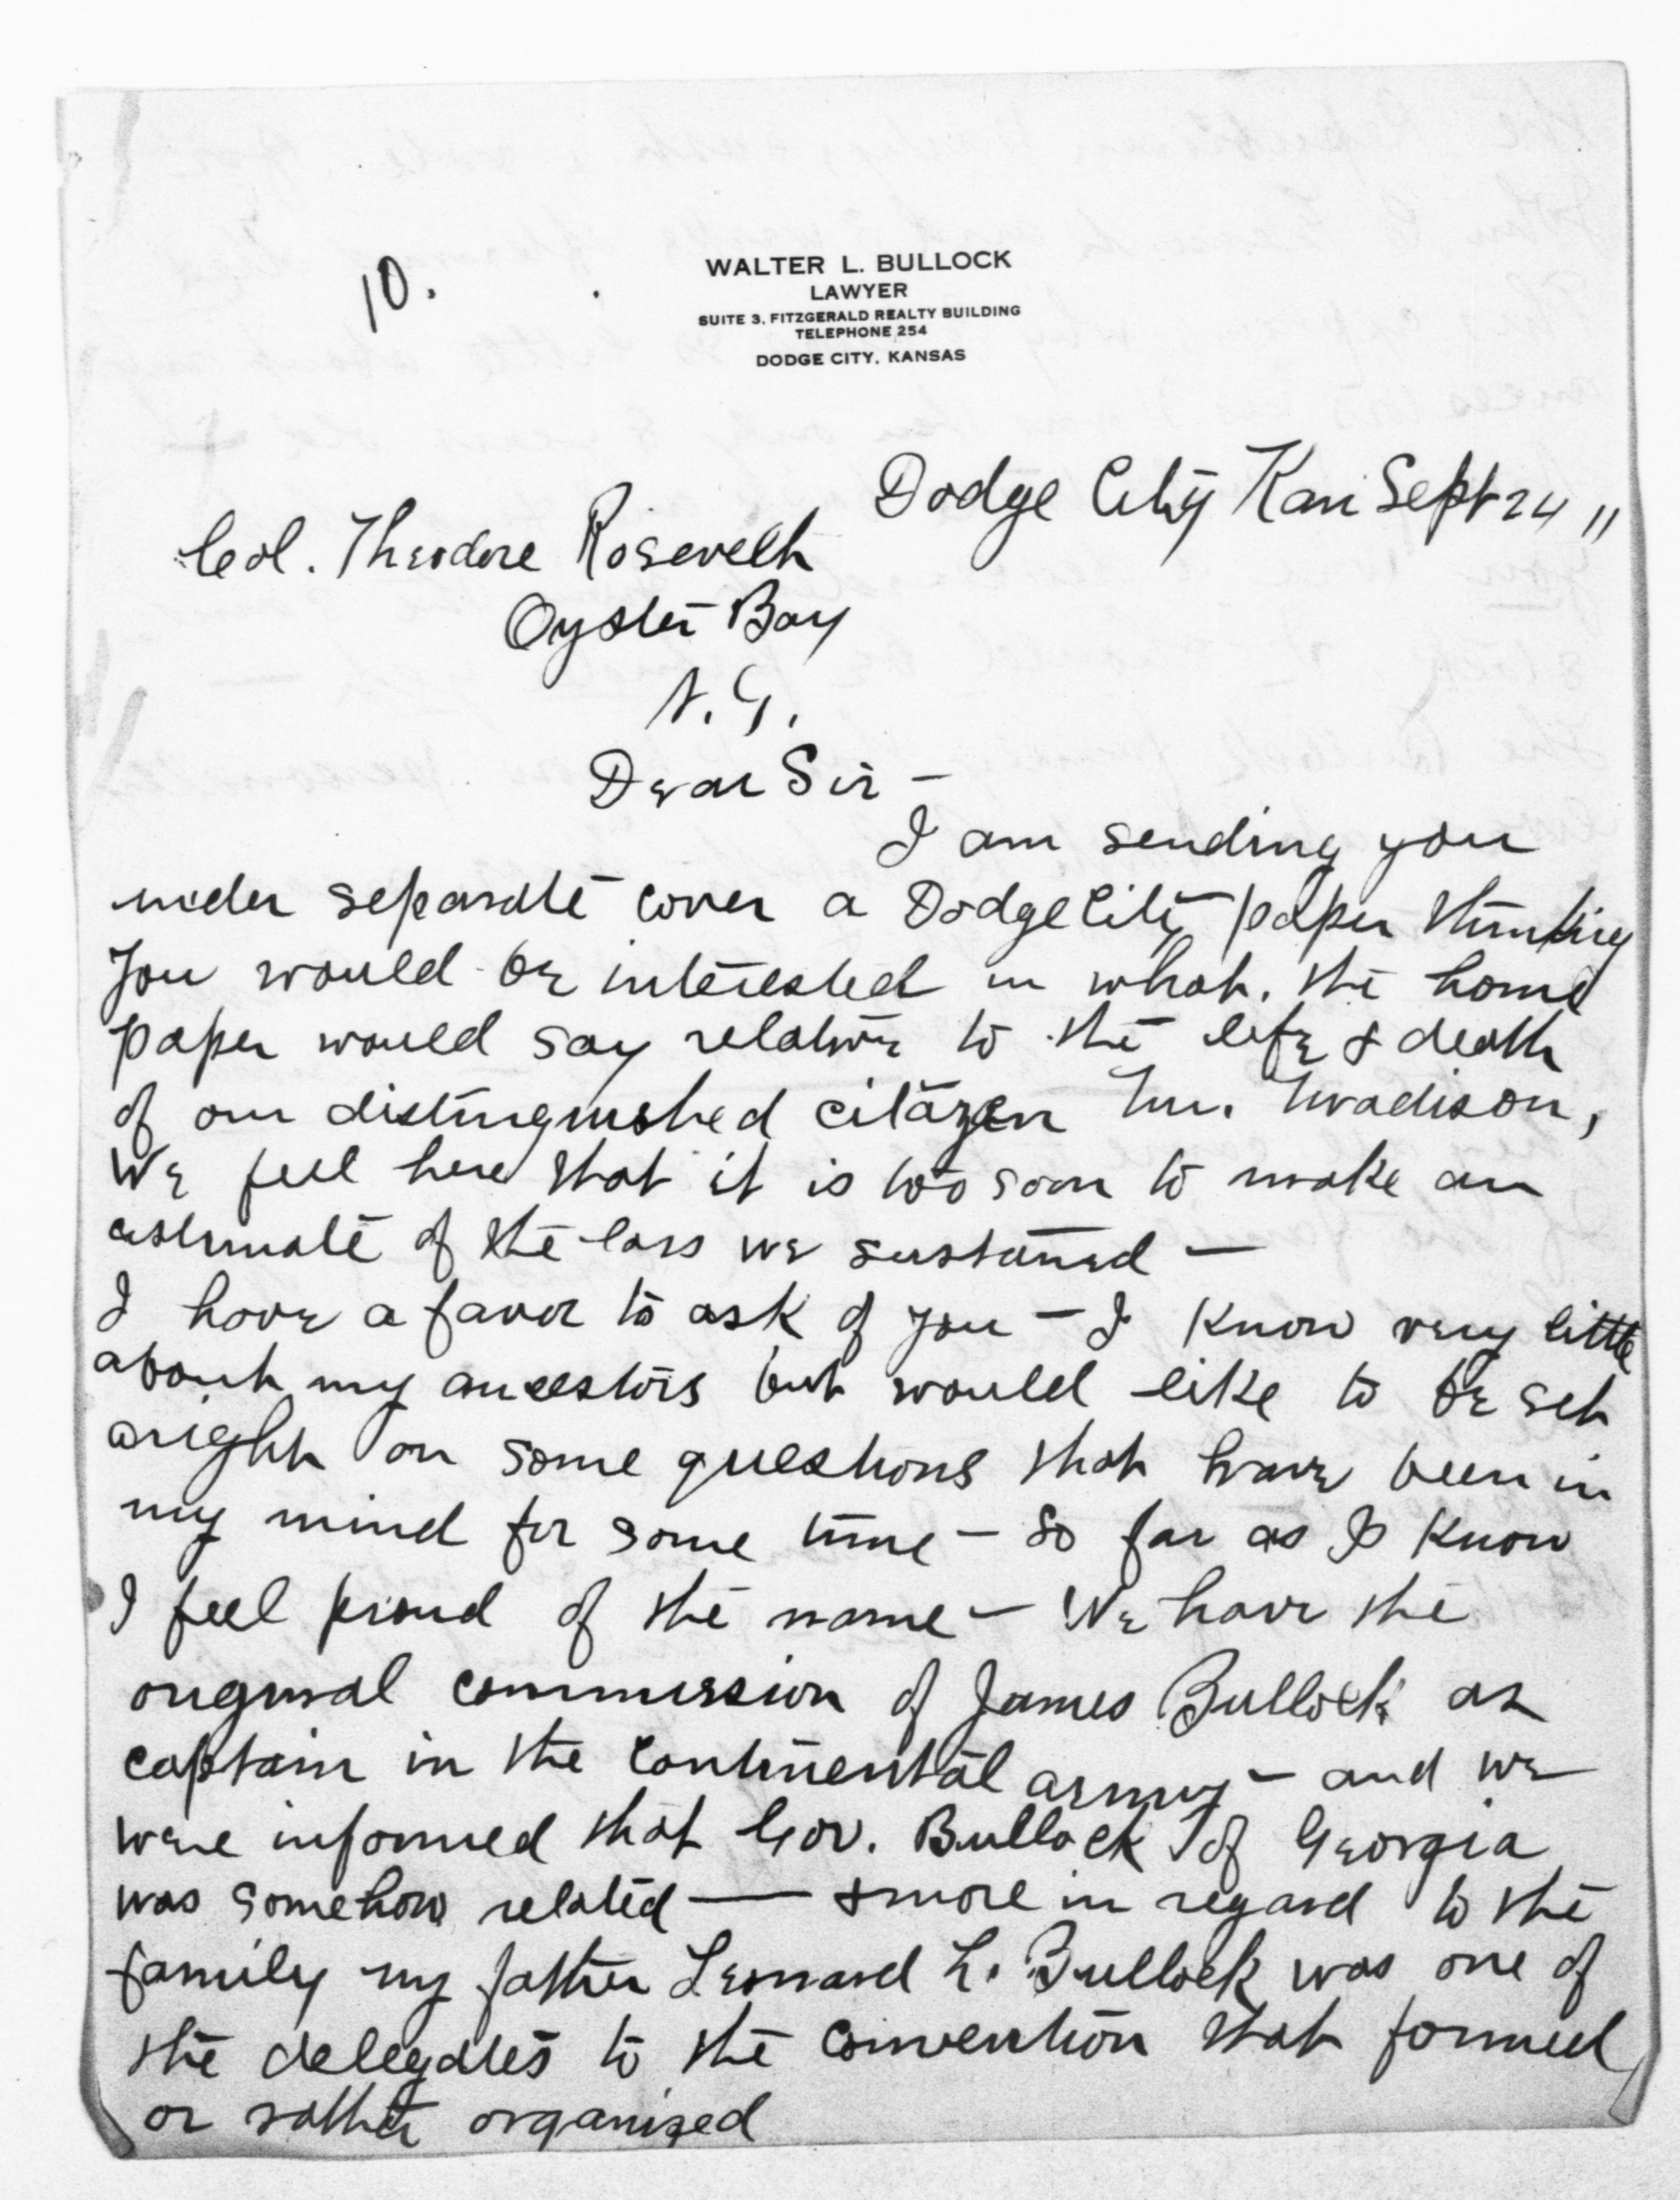 10.
WALTER L. BULLOCK
LAWYER
SUITE 3, FITZGERALD REALTY BUILDING
TELEPHONE 254
DODGE CITY, KANSAS
Dodge City Kan Sept 24 11
Col. Theodore Rosevelt
Oyster Bay
N.Y.
Dear Sir —
I am sending you
under separate cover a Dodge City paper thinking
you would be interested in what the home
paper would say relative to the life & death
of our distinguished citizen Mr. Madison,
We feel here that it is too soon to make an
estimate of the loss we sustained —
I have a favor to ask of you — I know very little
about my ancestors but would like to be set
aright on some questions that have been in
my mind for some time — so far as I know
I feel proud of the name — We have the
original commission of James Bullock as
captain in the Continental army — and we
were informed that Gov. Bullock of Georgia
was somehow related — & more in regard to the
family my father Leonard L. Bullock was one of
the delegates to the convention that formed
or rather organized